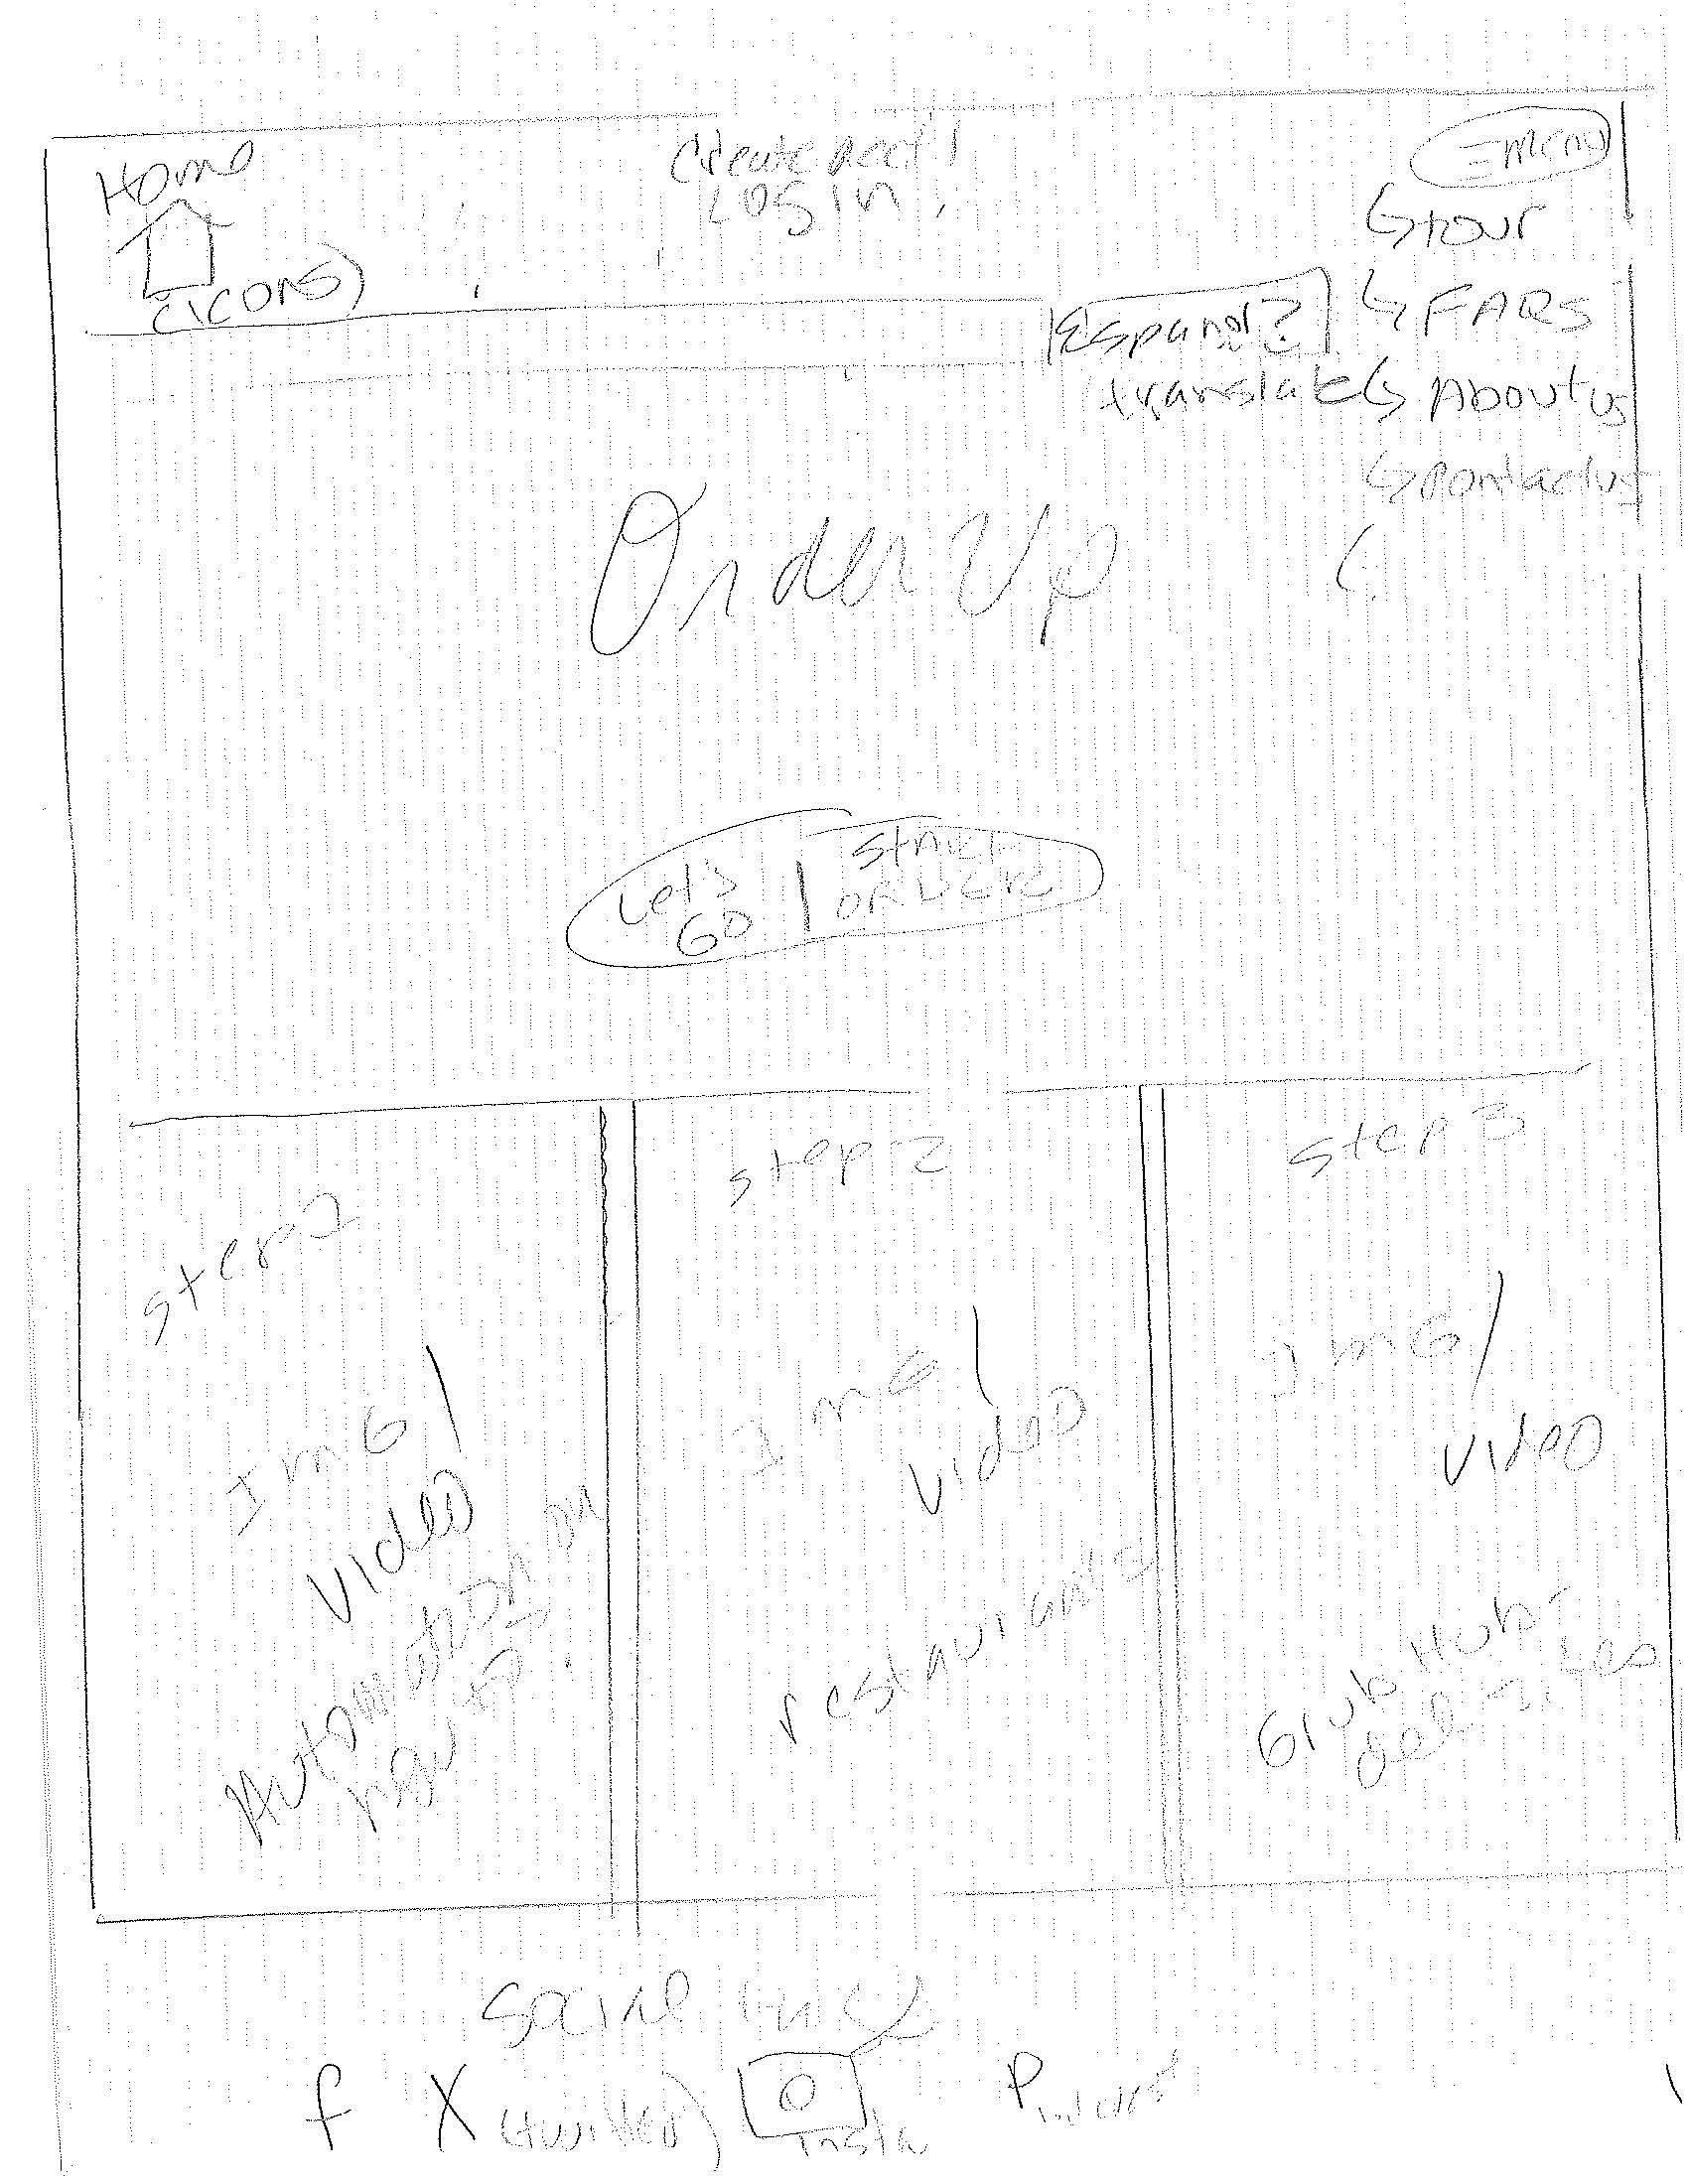 Home
(icons)
Create Acct /
Log in
Menu
tour
FAQs
About us
Contact us
Español?
translate
Order Up
Let's GO | START ORDER
Step 1
Img /
Video
Automation on
how to
Step 2
Img /
Video
restaurants
Step 3
Img /
Video
Grub Hub
Social links
f X (twitter) insta Pinterest